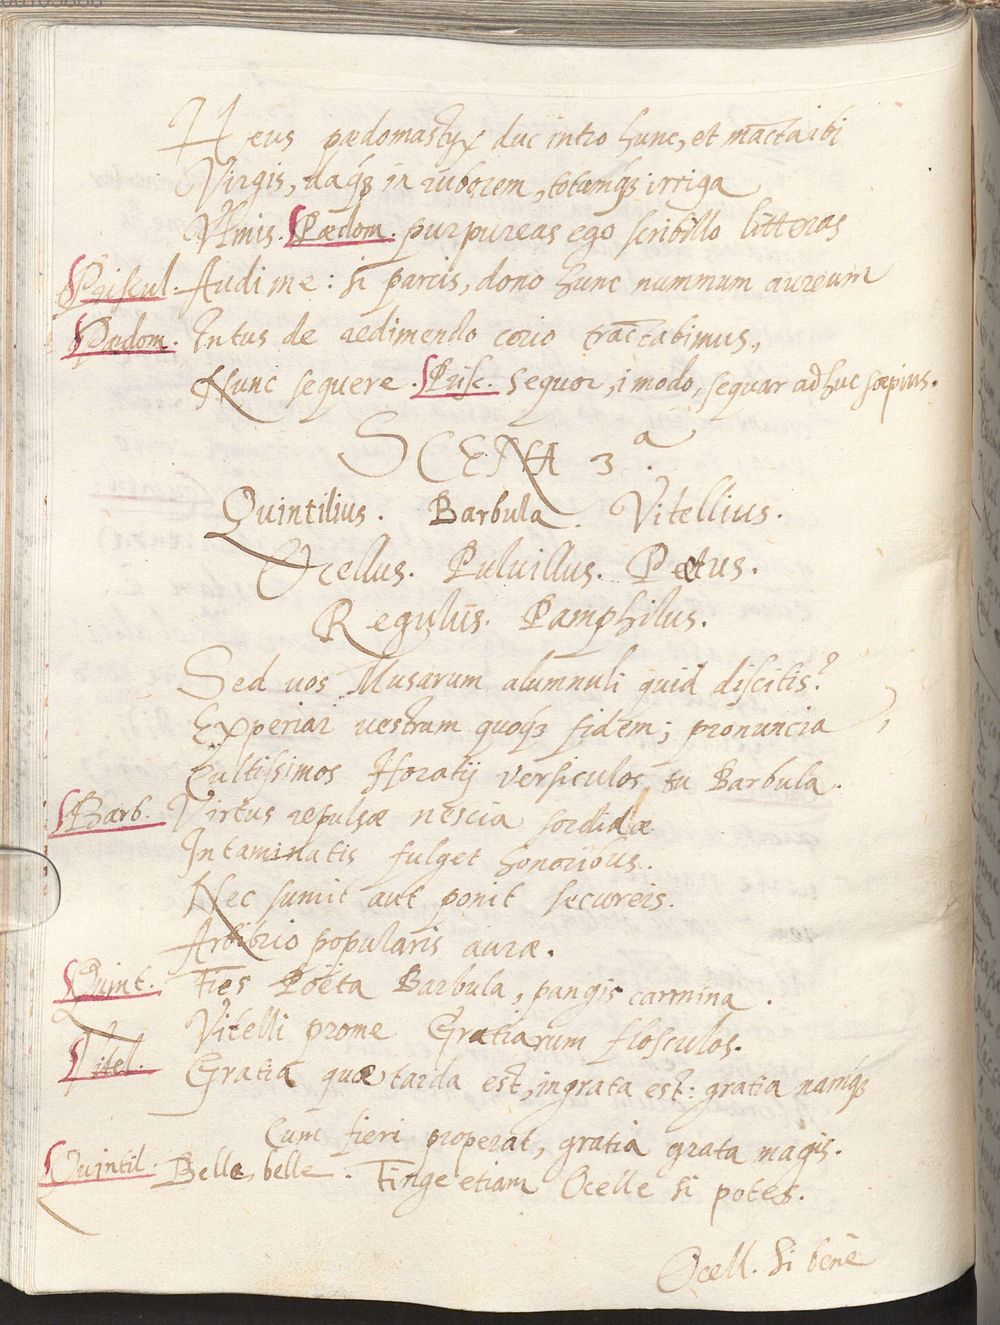 Heus pædomastyx duc intro hunc, et mācta ibi
Virgis, daqꝫ in ruborem, totumqꝫ irriga
Vlmis. Pædom. purpureas ego scribillo litteras
Priscul. Audi me: si parcis, dono hunc nummum aureum
Pædom. Intus de redimendo corio tractabimus,
Nunc sequere. Prisc. sequor, i modo, sequar adhuc sæpius.
SCENA 3.ª
Quintilius. Barbula. Vitellius.
Ocellus. Puluillus. Pætus.
Regulus. Pamphilus.
Sed uos Musarum alumnuli quid discitis?
Experiar uestrum quoqꝫ fidem; pronuncia
Cultissimos Horatij versiculos tu Barbula.
Barb. Virtus repulsæ nescia sordidæ
Intaminatis fulget honoribus.
Nec sumit aut ponit secureis.
Arbitrio popularis auræ.
Quint. Fies Poëta Barbula, pangis carmina.
Vitelli prome Gratiarum flosculos.
Vitel. Gratia quæ tarda est, ingrata est: gratia namqꝫ
Cum fieri properat, gratia grata magis.
Quintil: Belle, belle. Finge etiam Ocelle si potes.
Ocell. Si bene